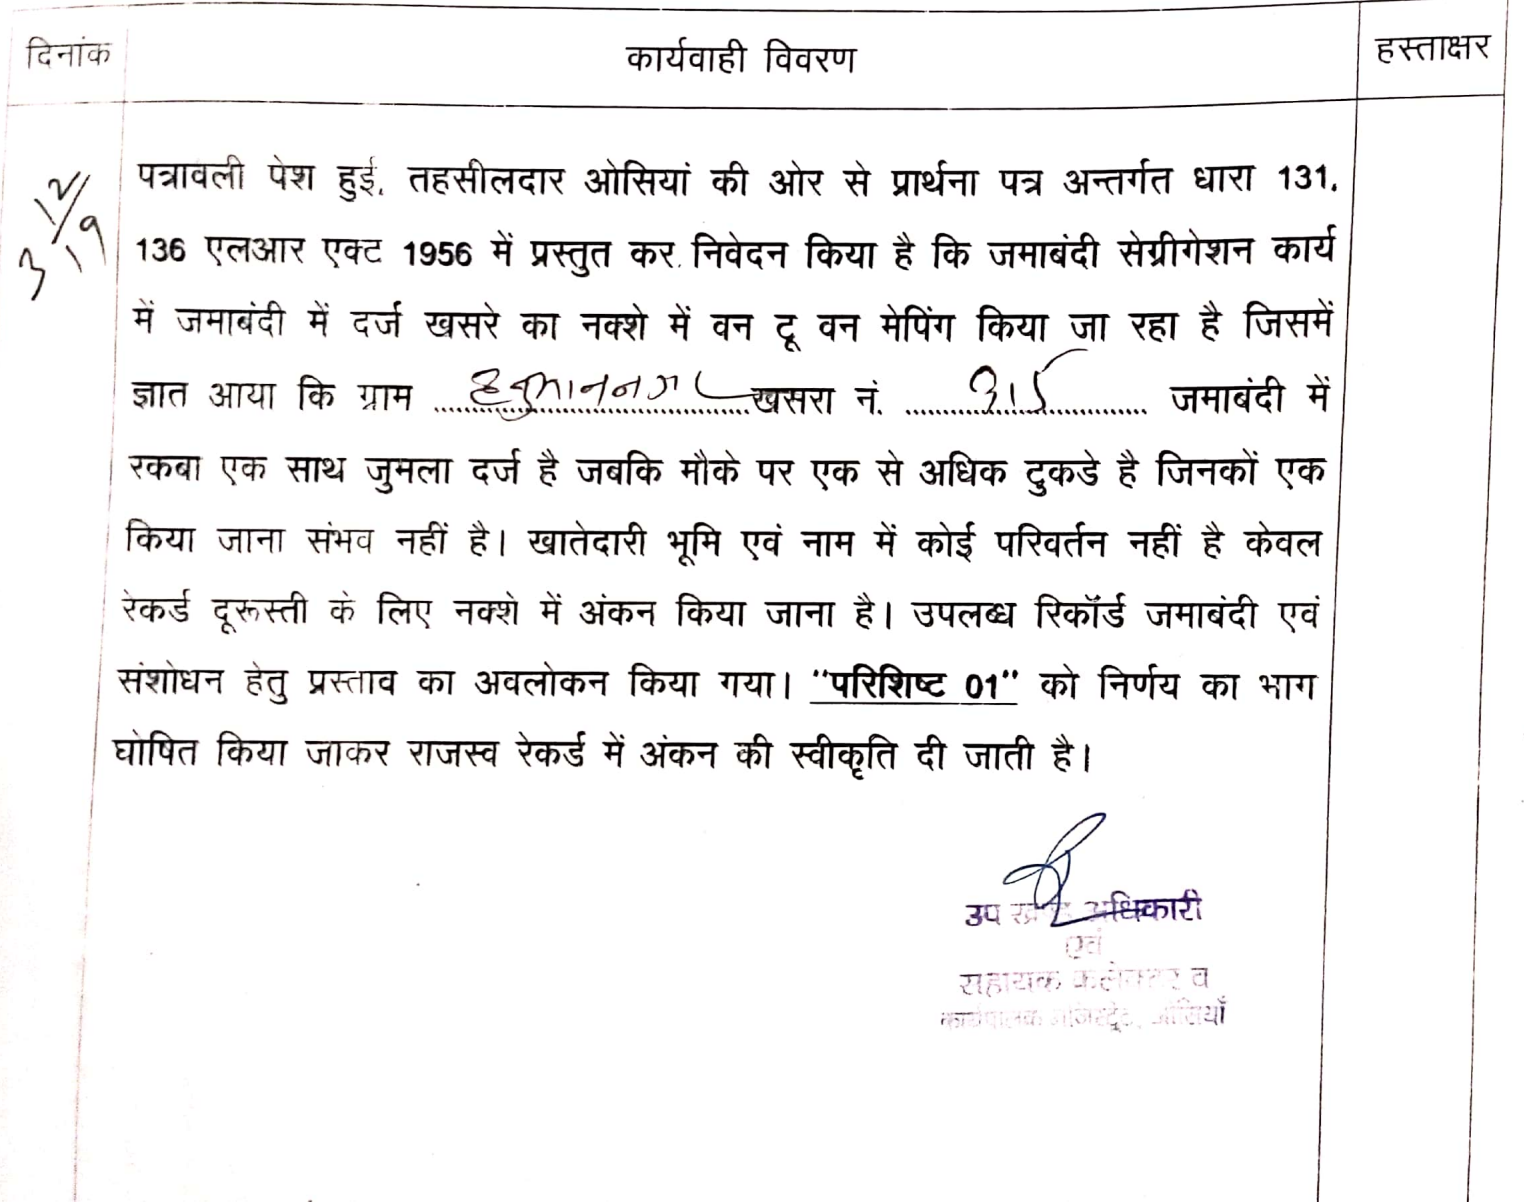 दिनांक कार्यवाही विवरण हस्ताक्षर
3/12/19
पत्रावली पेश हुई, तहसीलदार ओसियां की ओर से प्रार्थना पत्र अन्तर्गत धारा 131,
136 एलआर एक्ट 1956 में प्रस्तुत कर निवेदन किया है कि जमाबंदी सेग्रीगेशन कार्य
में जमाबंदी में दर्ज खसरे का नक्शे में वन टू वन मेपिंग किया जा रहा है जिसमें
ज्ञात आया कि ग्राम हनुमाननगर खसरा नं. 315 जमाबंदी में
रकबा एक साथ जुमला दर्ज है जबकि मौके पर एक से अधिक टुकडे है जिनकों एक
किया जाना संभव नहीं है। खातेदारी भूमि एवं नाम में कोई परिवर्तन नहीं है केवल
रेकर्ड दूरूस्ती के लिए नक्शे में अंकन किया जाना है। उपलब्ध रिकॉर्ड जमाबंदी एवं
संशोधन हेतु प्रस्ताव का अवलोकन किया गया। "परिशिष्ट 01" को निर्णय का भाग
घोषित किया जाकर राजस्व रेकर्ड में अंकन की स्वीकृति दी जाती है।
उप खण्ड अधिकारी
एवं
सहायक कलेक्टर व
कार्यपालक मजिस्ट्रेट, ओसियाँ